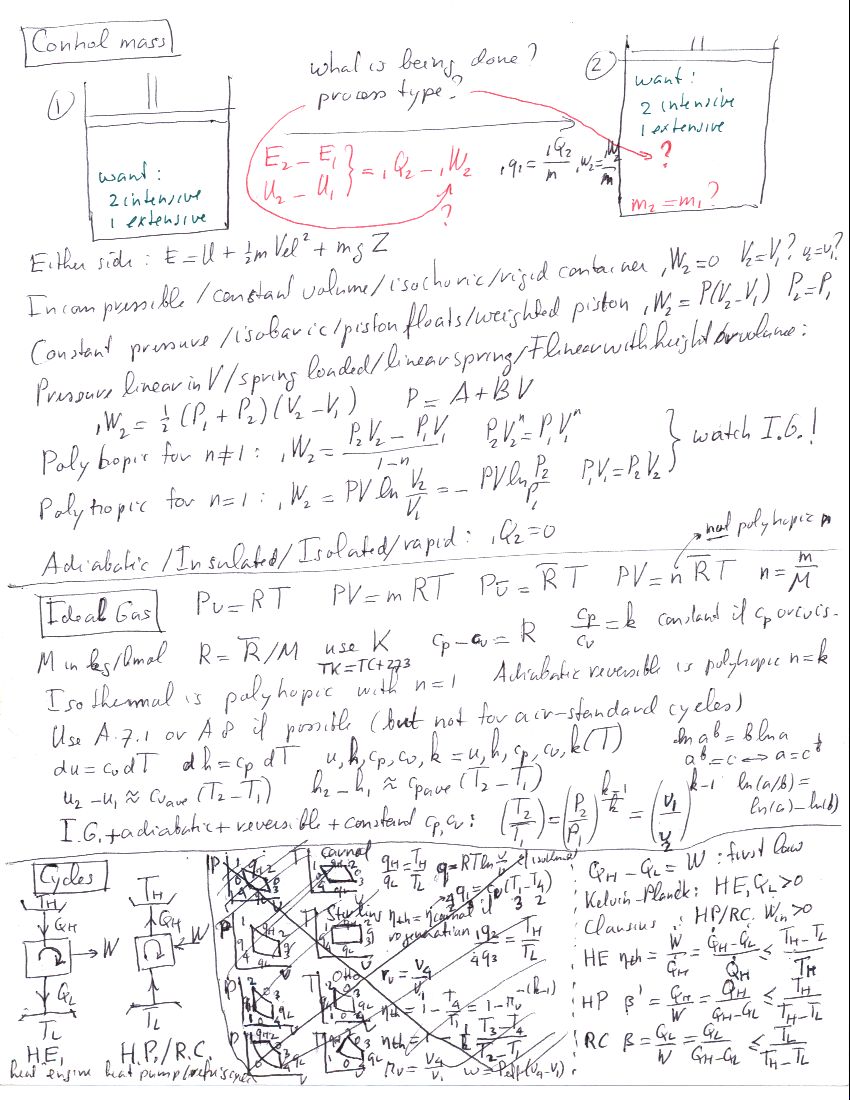 Control mass
what is being done?
process type?
①
②
want:
2 intensive
1 extensive
want:
2 intensive
1 extensive
?
m₂ = m₁ ?
E₂ – E₁
U₂ – U₁ } = ₁Q₂ – ₁W₂
?
₁q₂ = ₁Q₂/m , ₁w₂ = ₁W₂/m
Either side: E = U + ½ m Vel² + m g Z
Incompressible / constant volume / isochoric / rigid container ₁W₂ = 0 V₂ = V₁? v₂ = v₁?
Constant pressure / isobaric / piston floats / weighted piston ₁W₂ = P(V₂ – V₁) P₂ = P₁
Pressure linear in V / spring loaded / linear spring / F linear with height or volume:
₁W₂ = ½ (P₁ + P₂) (V₂ – V₁) P = A + B V
Polytropic for n ≠ 1: ₁W₂ = (P₂V₂ – P₁V₁)/(1 – n) P₂V₂ⁿ = P₁V₁ⁿ
Polytropic for n = 1: ₁W₂ = PV ln V₂/V₁ = – PV ln P₂/P₁ P₁V₁ = P₂V₂ } watch I.G.!
Adiabatic / Insulated / Isolated / rapid: ₁Q₂ = 0
not polytropic n
Ideal Gas Pv = RT PV = mRT Pv̄ = R̄T PV = nR̄T n = m/M
M in kg/kmol R = R̄/M use K cp – cv = R cp/cv = k constant if cp or cv is.
TK = TC + 273
Isothermal is polytropic with n = 1 Adiabatic reversible is polytropic n = k
Use A.7.1 or A 8 if possible (but not for air-standard cycles)
du = cv dT dh = cp dT u, h, cp, cv, k = u, h, cp, cv, k (T)
ln aᵇ = b ln a
aᵇ = c ↔ a = c^(1/b)
u₂ – u₁ ≈ cv ave (T₂ – T₁) h₂ – h₁ ≈ cp ave (T₂ – T₁)
ln(a/b) =
ln(a) – ln(b)
I.G. + adiabatic + reversible + constant cp, cv: (T₂/T₁) = (P₂/P₁)^((k–1)/k) = (v₁/v₂)^(k–1)
Cycles
TH
QH
W
QL
TL
H.E.
heat engine
TH
QH
W
QL
TL
H.P./R.C.
heat pump/refrig cycle
Carnot
qH/qL = TH/TL
Stirling
ηth = ηcarnot if
regeneration
Otto
rv = v₄/v₁
QH – QL = W : first law
Kelvin-Planck: HE, QL > 0
Clausius : HP/RC. Win > 0
HE ηth = W/QH = (QH – QL)/QH ≤ (TH – TL)/TH
HP β' = QH/W = QH/(QH – QL) ≤ TH/(TH – TL)
RC β = QL/W = QL/(QH – QL) ≤ TL/(TH – TL)